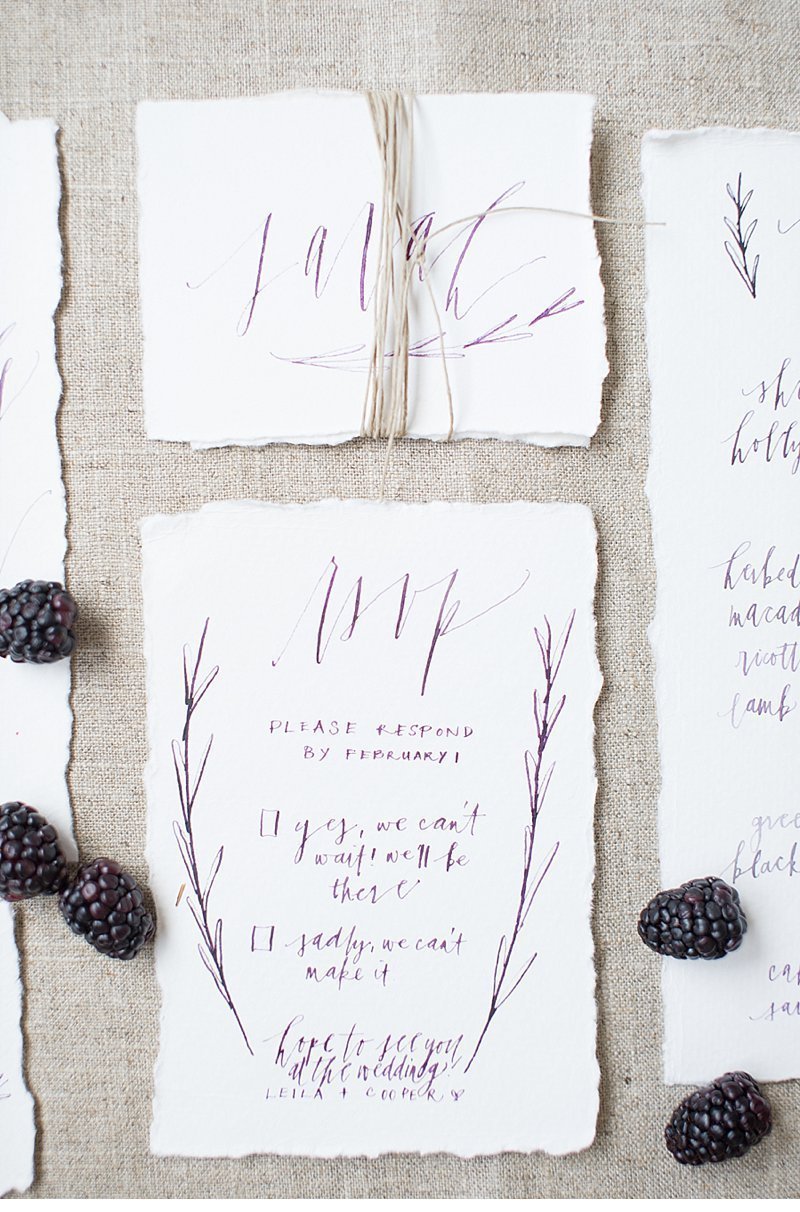 sarah
rsvp
PLEASE RESPOND
BY FEBRUARY 1
yes, we can't
wait! we'll be
there
sadly, we can't
make it
hope to see you
at the wedding!
LEILA + COOPER
holly
herbed
ricott
lamb
black